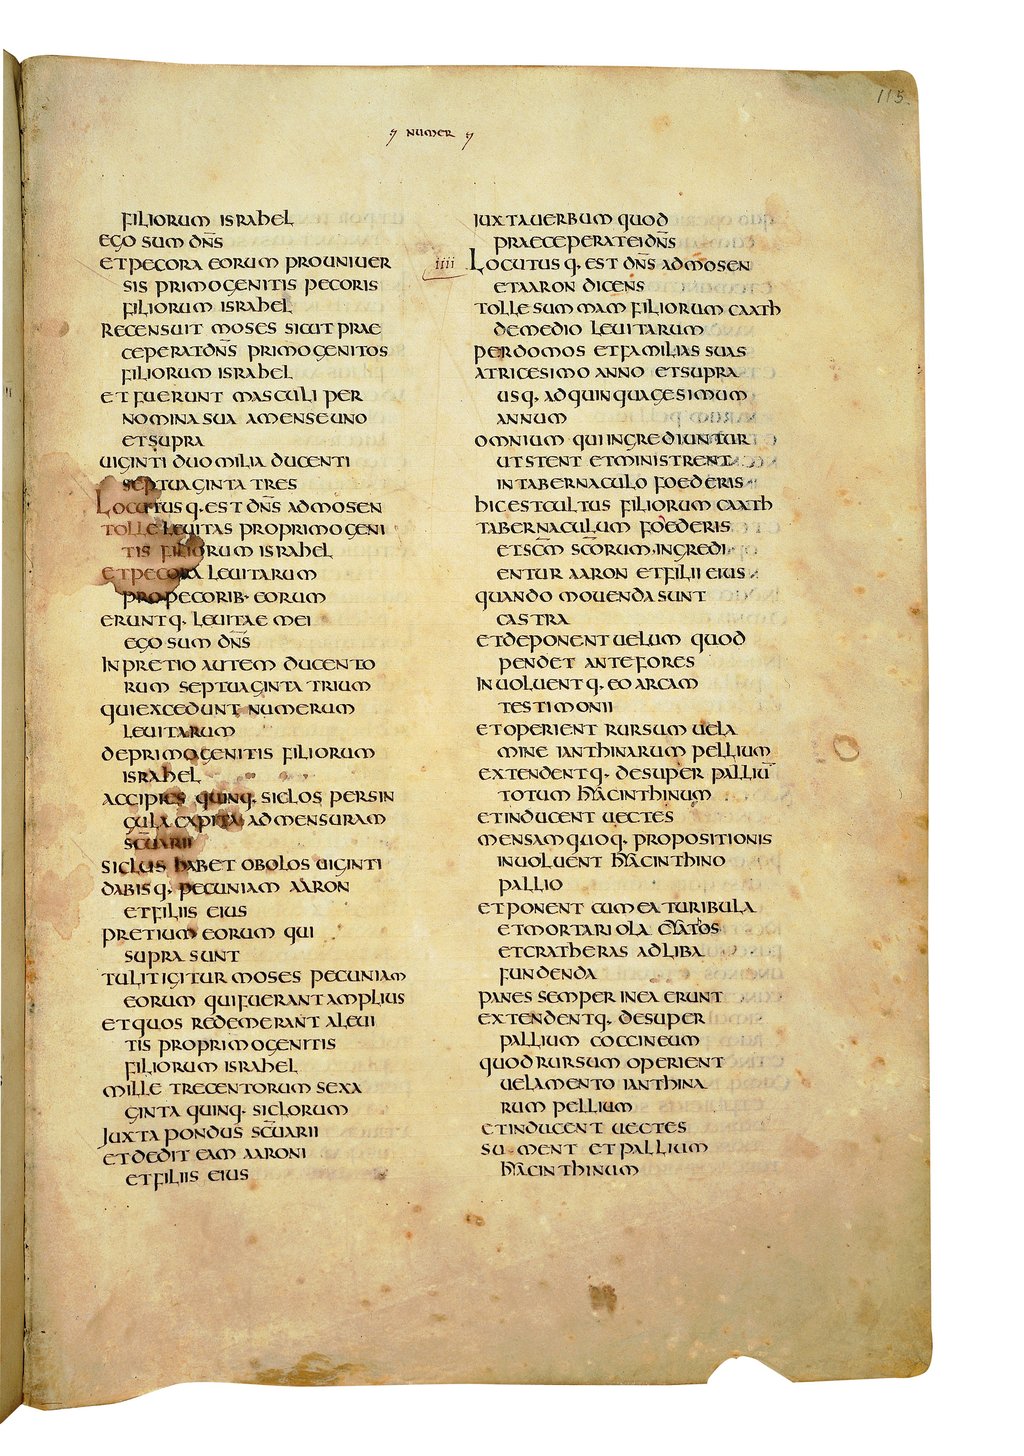 115.
NUMER
FILIORUM ISRAHEL
EGO SUM DN̄S
ET PECORA EORUM PRO UNIUER
SIS PRIMOGENITIS PECORIS
FILIORUM ISRAHEL
RECENSUIT MOSES SICUT PRAE
CEPERAT DN̄S PRIMOGENITOS
FILIORUM ISRAHEL
ET FUERUNT MASCULI PER
NOMINA SUA A MENSE UNO
ET SUPRA
UIGINTI DUO MILIA DUCENTI
SEPTUAGINTA TRES
LOCUTUS Q· EST DN̄S AD MOSEN
TOLLE LEUITAS PRO PRIMOGENI
TIS FILIORUM ISRAHEL
ET PECORA LEUITARUM
PRO PECORIB· EORUM
ERUNT Q· LEUITAE MEI
EGO SUM DN̄S
IN PRETIO AUTEM DUCENTO
RUM SEPTUAGINTA TRIUM
QUI EXCEDUNT NUMERUM
LEUITARUM
DE PRIMOGENITIS FILIORUM
ISRAHEL
ACCIPIES QUINQ· SICLOS PER SIN
GULA CAPITA AD MENSURAM
SC̄UARII
SICLUS HABET OBOLOS UIGINTI
DABIS Q· PECUNIAM AARON
ET FILIIS EIUS
PRETIUM EORUM QUI
SUPRA SUNT
TULIT IGITUR MOSES PECUNIAM
EORUM QUI FUERANT AMPLIUS
ET QUOS REDEMERANT A LEUI
TIS PRO PRIMOGENITIS
FILIORUM ISRAHEL
MILLE TRECENTORUM SEXA
GINTA QUINQ· SICLORUM
IUXTA PONDUS SC̄UARII
ET DEDIT EAM AARONI
ET FILIIS EIUS
IUXTA UERBUM QUOD
PRAECEPERAT EI DN̄S
IIII LOCUTUS Q· EST DN̄S AD MOSEN
ET AARON DICENS
TOLLE SUMMAM FILIORUM CAATH
DE MEDIO LEUITARUM
PER DOMOS ET FAMILIAS SUAS
A TRICESIMO ANNO ET SUPRA
USQ· AD QUINQUAGESIMUM
ANNUM
OMNIUM QUI INGREDIUNTUR
UT STENT ET MINISTRENT
IN TABERNACULO FOEDERIS
HIC EST CULTUS FILIORUM CAATH
TABERNACULUM FOEDERIS
ET SC̄M SC̄ORUM·INGREDI
ENTUR AARON ET FILII EIUS
QUANDO MOUENDA SUNT
CASTRA
ET DEPONENT UELUM QUOD
PENDET ANTE FORES
INUOLUENT Q· EO ARCAM
TESTIMONII
ET OPERIENT RURSUM UELA
MINE IANTHINARUM PELLIUM
EXTENDENT Q· DESUPER PALLIŪ
TOTUM HYACINTHINUM
ET INDUCENT UECTES
MENSAM QUOQ· PROPOSITIONIS
INUOLUENT HYACINTHINO
PALLIO
ET PONENT CUM EA TURIBULA
ET MORTARIOLA CYATOS
ET CRATHERAS AD LIBA
FUNDENDA
PANES SEMPER IN EA ERUNT
EXTENDENT Q· DESUPER
PALLIUM COCCINEUM
QUOD RURSUM OPERIENT
UELAMENTO IANTHINA
RUM PELLIUM
ET INDUCENT UECTES
SUMENT ET PALLIUM
HYACINTHINUM